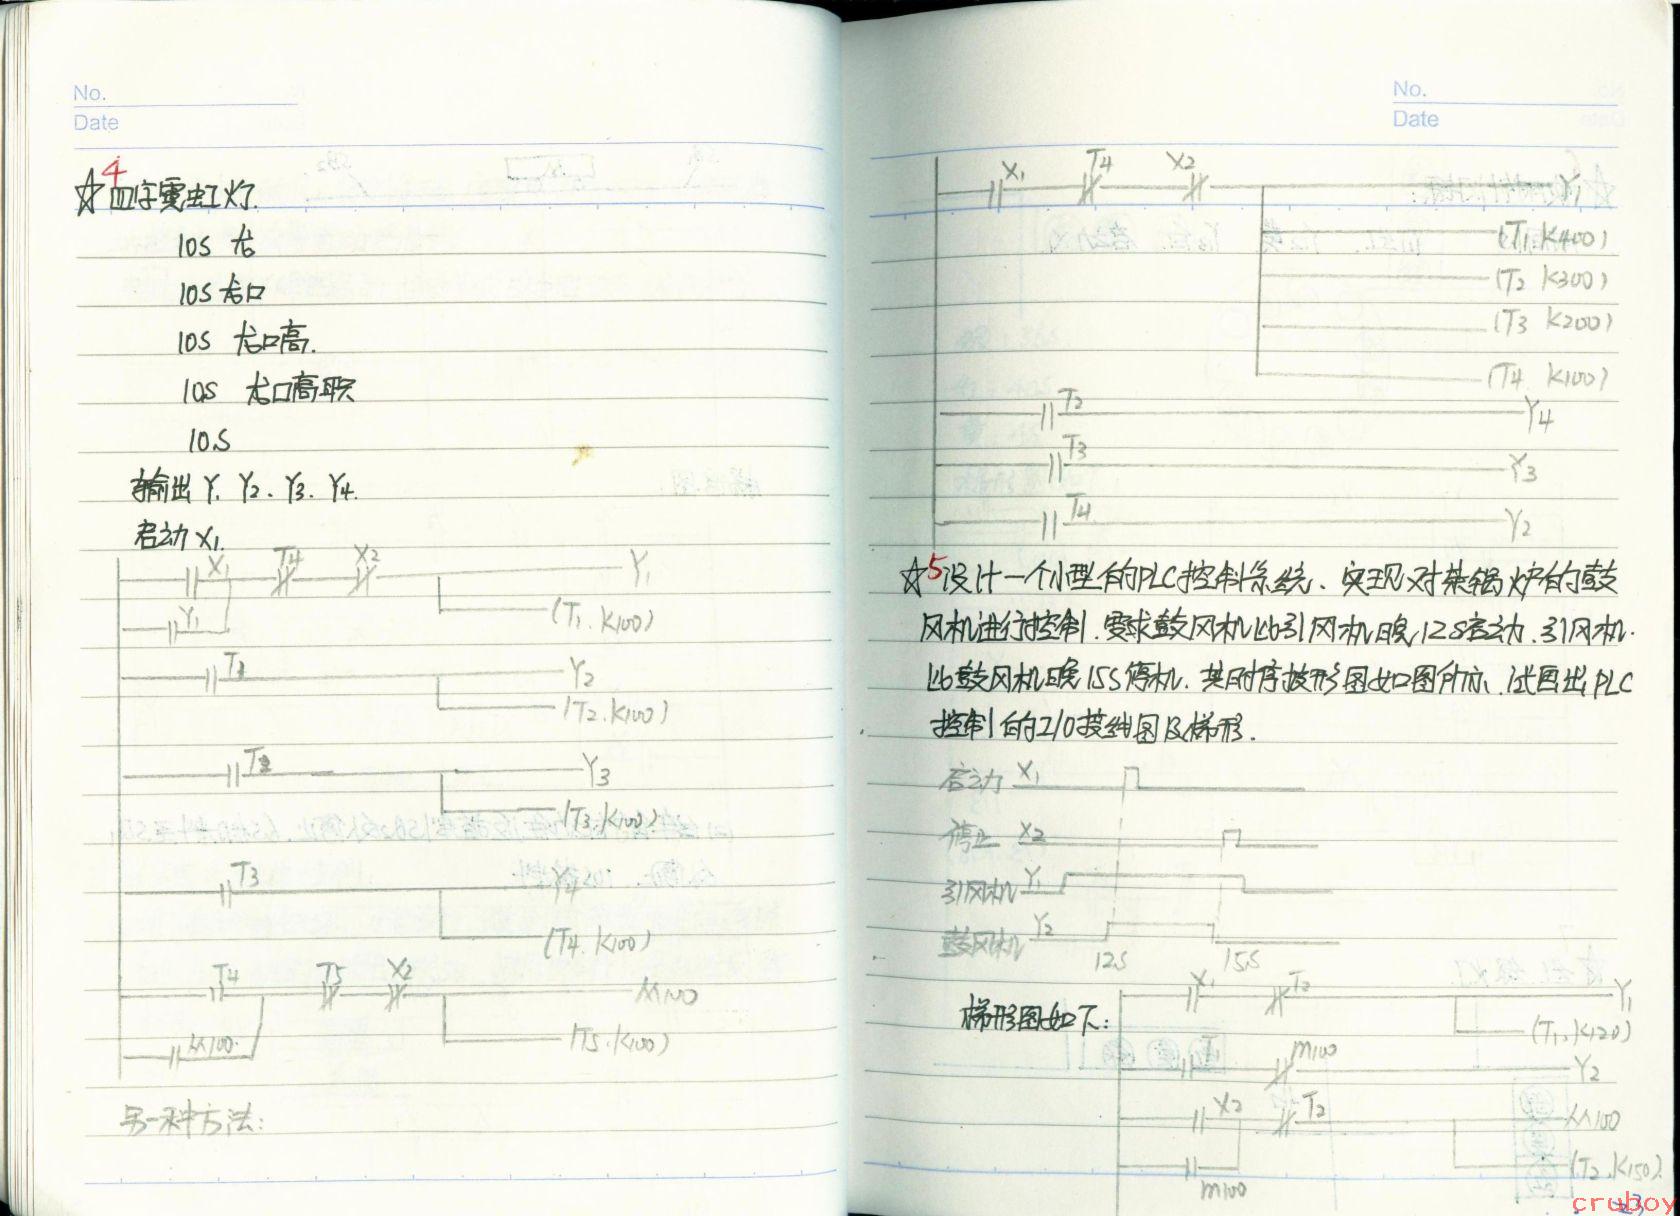 No.
Date
☆4 四字霓虹灯.
10S 龙
10S 龙口
10S 龙口高.
10S 龙口高职
10S
输出 Y1 Y2、Y3、Y4.
启动 X1.
X1 T4 X2 Y1
Y1 (T1. K100)
T1 Y2
(T2. K100)
T2 Y3
(T3. K100)
T3 Y4
(T4. K100)
T4 T5 X2 M100
M100. (T5. K100)
另一种方法:
No.
Date
X1 T4 X2 Y1
(T1 K400)
(T2 K300)
(T3 K200)
(T4 K100)
T2 Y4
T3 Y3
T4 Y2
☆5 设计一个小型的PLC控制系统、实现对某锅炉的鼓
风机进行控制.要求鼓风机比引风机晚12S启动.引风机.
比鼓风机晚15S停机.其时序波形图如图所示.试画出PLC
控制的I/O接线图及梯形.
启动 X1
停止 X2
引风机 Y1
鼓风机 Y2
12S 15S
梯形图如下:
X1 T2 Y1
(T1. K120)
T1 M100 Y2
X2 T2 M100
M100 (T2. K150)
cruboy